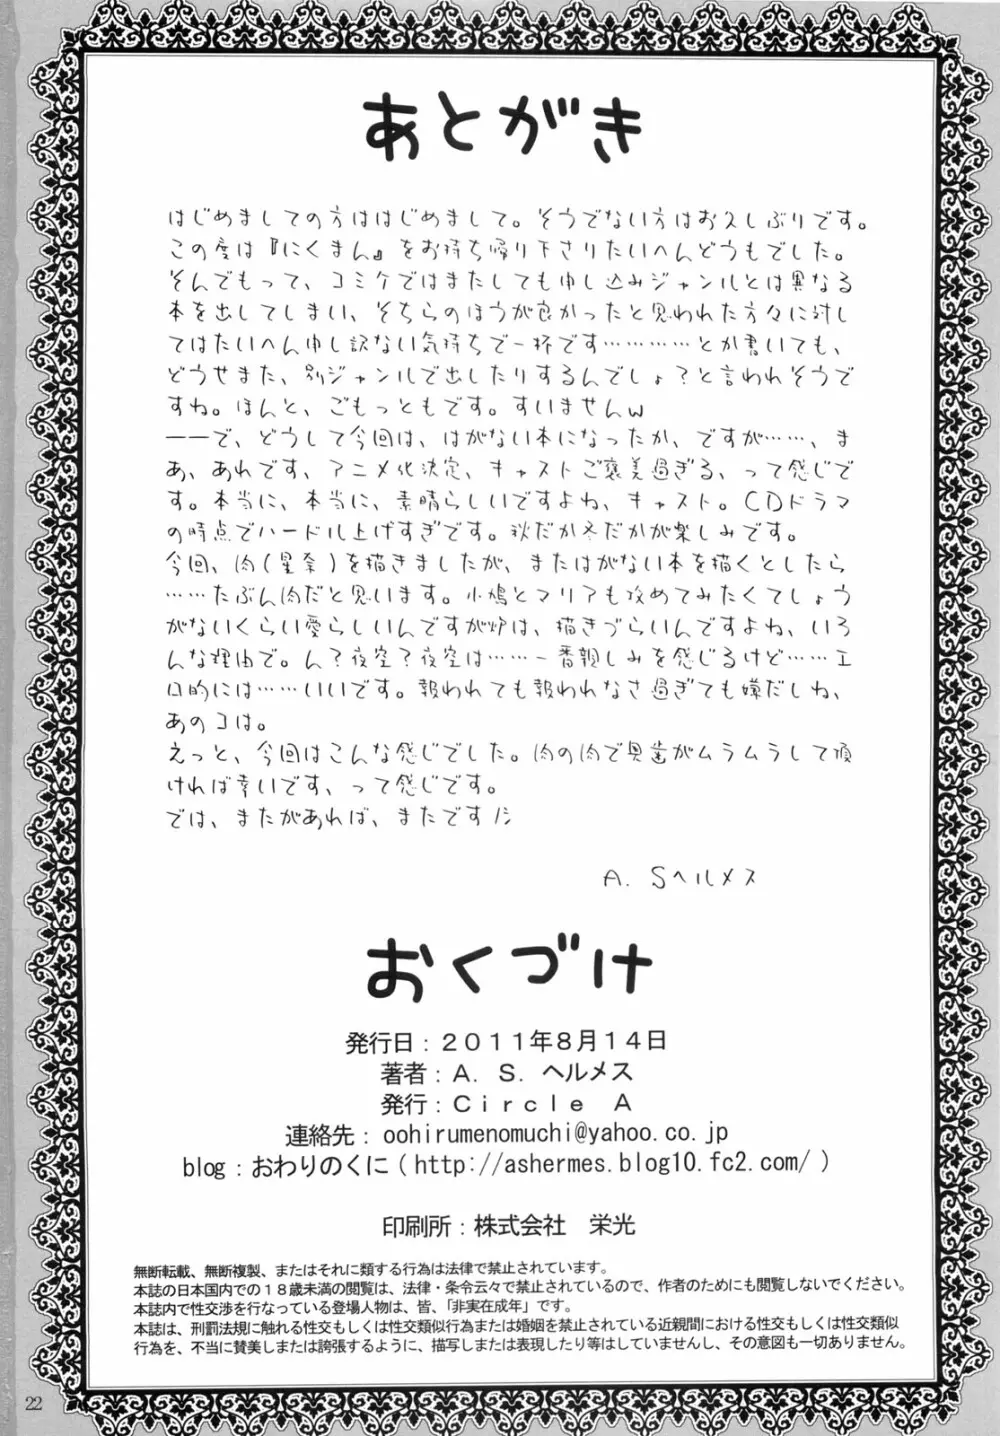 あとがき
はじめましての方ははじめまして。そうでない方はお久しぶりです。
この度は『にくまん』をお持ち帰り下さりたいへんどうもでした。
そんでもって、コミケではまたしても申し込みジャンルとは異なる
本を出してしまい、そちらのほうが良かったと思われた方々に対し
てはたいへん申し訳ない気持ちで一杯です…………とか書いても、
どうせまた、別ジャンルで出したりするんでしょ?と言われそうで
すね。ほんと、ごもっともです。すいませんw
――で、どうして今回は、はがない本になったか、ですが……、ま
あ、あれです、アニメ化決定、キャストご褒美過ぎる、って感じで
す。本当に、本当に、素晴らしいですよね、キャスト。CDドラマ
の時点でハードル上げすぎです。秋だか冬だかが楽しみです。
今回、肉(星奈)を描きましたが、またはがない本を描くとしたら
……たぶん肉だと思います。小鳩とマリアも攻めてみたくてしょう
がないくらい愛らしいんですが炉は、描きづらいんですよね、いろ
んな理由で。ん?夜空?夜空は……一番親しみを感じるけど……エ
ロ的には……いいです。報われても報われなさ過ぎても嫌だしね、
あのコは。
えっと、今回はこんな感じでした。肉の肉で奥歯がムラムラして頂
ければ幸いです、って感じです。
では、またがあれば、またです/シ
A. Sヘルメス
おくづけ
発行日:2011年8月14日
著者:A. S. ヘルメス
発行:Circle A
連絡先: oohirumenomuchi@yahoo.co.jp
blog:おわりのくに(http://ashermes.blog10.fc2.com/)
印刷所:株式会社 栄光
無断転載、無断複製、またはそれに類する行為は法律で禁止されています。
本誌の日本国内での18歳未満の閲覧は、法律・条令云々で禁止されているので、作者のためにも閲覧しないでください。
本誌内で性交渉を行なっている登場人物は、皆、「非実在成年」です。
本誌は、刑罰法規に触れる性交もしくは性交類似行為または婚姻を禁止されている近親間における性交もしくは性交類似
行為を、不当に賛美しまたは誇張するように、描写しまたは表現したり等はしていませんし、その意図も一切ありません。
22